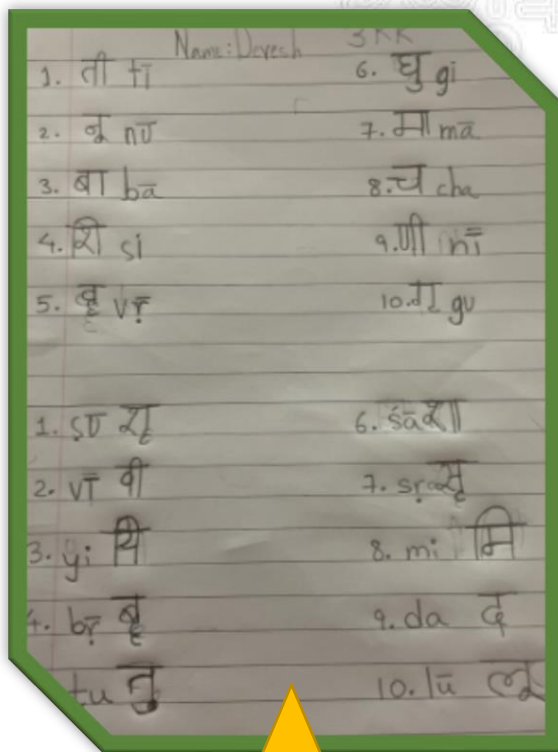 Name: Devesh 3KK
1. ती tī
2. नू nū
3. बा bā
4. शि si
5. बृ vṝ
6. घु gi
7. मा mā
8. च cha
9. णी nī
10. गु gu
1. sū शू
2. vī वी
3. yi यि
4. bṛ बृ
tu तु
6. śā शा
7. sṛ सृ
8. mi मि
9. da द
10. lū लू